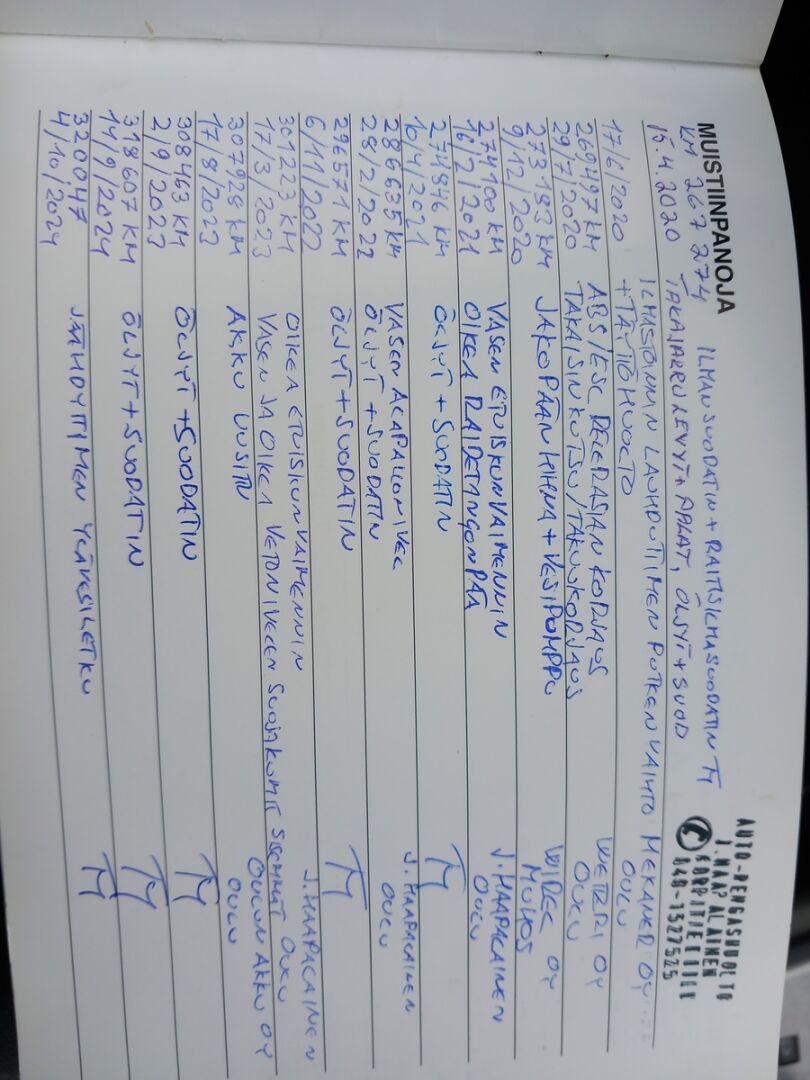 MUISTIINPANOJA
KM 267 274 ILMANSUODATIN + RAITISILMASUODATIN TM
15.4.2020 TAKAJARRULEVYT + PALAT, ÖLJYT + SUOD
AUTO-RENGASHUOLTO
J. HAAPALAINEN
040-1327525
ILMASTOINNIN LAUHDUTTIMEN PUTKEN VAIHTO MEKANER OY
17/6/2020 + TÄYTTÖHUOLTO OULU
269497 KM ABS/ESC RELERASIAN KORJAUS WETERI OY
29/7/2020 TAKAISINKUTSU/TAKUUKORJAUS OULU
273193 KM JAKOPÄÄN HIHNA + VESIPUMPPU WIREC OY
9/12/2020 MUHOS
274100 KM VASEN ETUISKUNVAIMENNIN J. HAAPALAINEN
16/2/2021 OIKEA RAIDETANGONPÄÄ OULU
274846 KM ÖLJYT + SUODATIN TM
10/4/2021
286635 KM VASEN ALAPALLONIVEL J. HAAPALAINEN
28/2/2022 ÖLJYT + SUODATIN OULU
296571 KM ÖLJYT + SUODATIN TM
6/11/2022
301223 KM OIKEA ETUISKUNVAIMENNIN J. HAAPALAINEN
17/3/2023 VASEN JA OIKEA VETONIVELEN SUOJAKUMIT OULU
307928 KM AKKU UUSITU OULUN AKKU OY
17/8/2023 OULU
308463 KM ÖLJYT + SUODATIN TM
2/9/2023
318607 KM ÖLJYT + SUODATIN TM
14/9/2024
320047 JÄÄHDYTTIMEN YLÄVESILETKU TM
4/10/2024